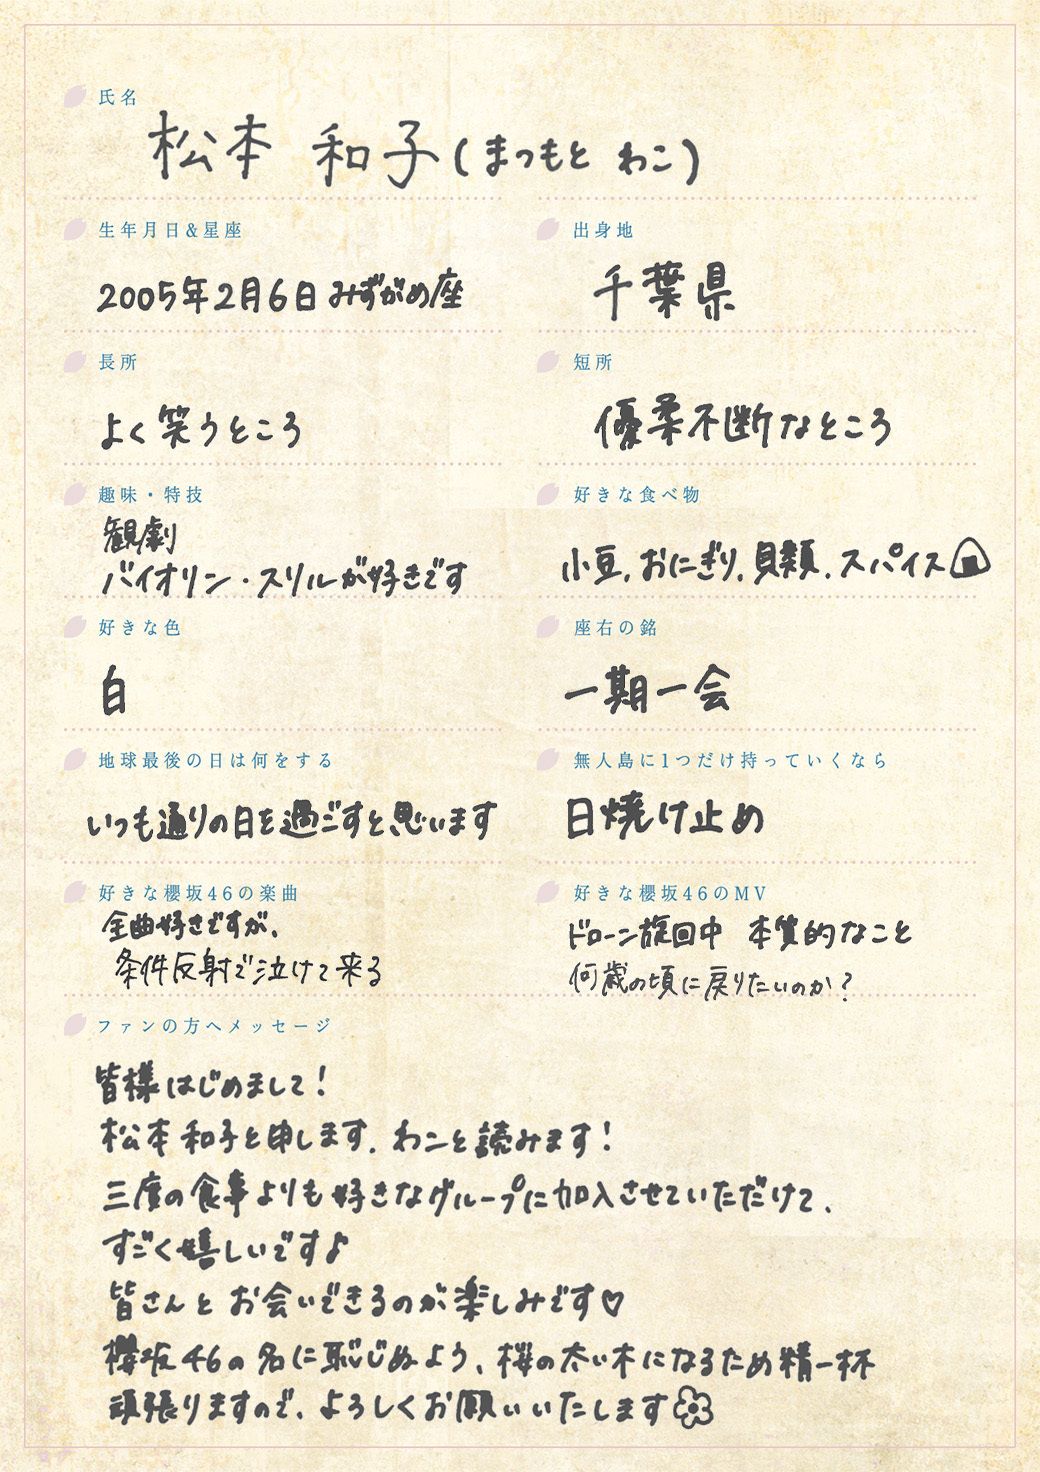 氏名
松本 和子(まつもと わこ)
生年月日&星座
2005年2月6日 みずがめ座
出身地
千葉県
長所
よく笑うところ
短所
優柔不断なところ
趣味・特技
観劇
バイオリン・スリルが好きです
好きな食べ物
小豆、おにぎり、貝類、スパイス
好きな色
白
座右の銘
一期一会
地球最後の日は何をする
いつも通りの日を過ごすと思います
無人島に1つだけ持っていくなら
日焼け止め
好きな櫻坂46の楽曲
全曲好きですが、
条件反射で泣けて来る
好きな櫻坂46のMV
ドローン旋回中 本質的なこと
何歳の頃に戻りたいのか?
ファンの方へメッセージ
皆様はじめまして!
松本和子と申します。わこと読みます!
三度の食事よりも好きなグループに加入させていただけて、
すごく嬉しいです♪
皆さんとお会いできるのが楽しみです♡
櫻坂46の名に恥じぬよう、桜の太い木になるため精一杯
頑張りますので、よろしくお願いいたします